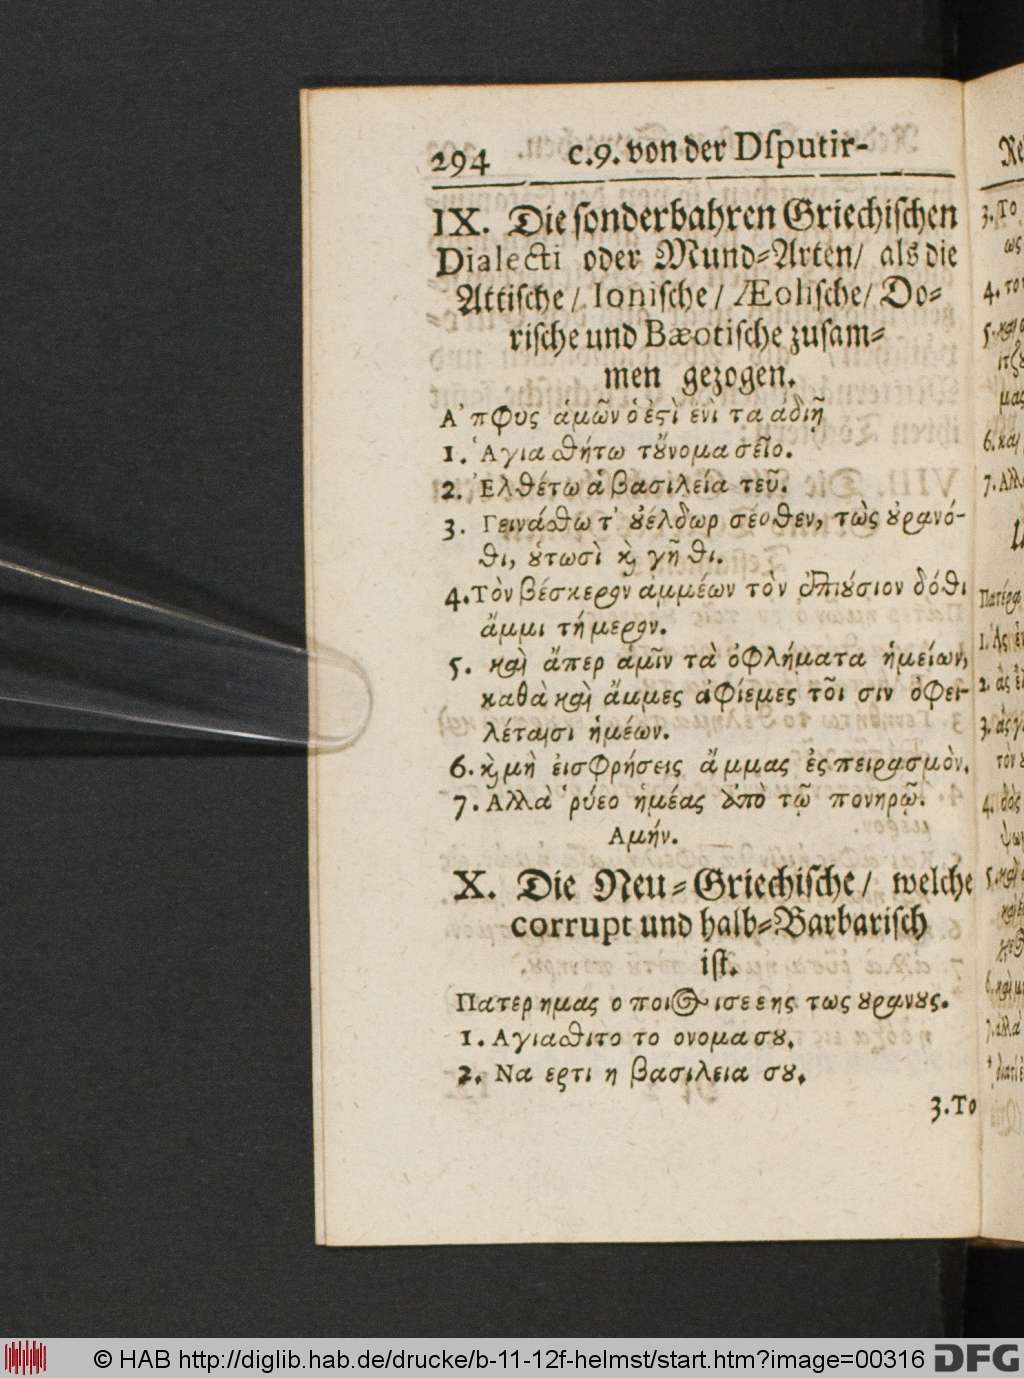 294 c.9. von der Dsputir-
IX. Die sonderbahren Griechischen
Dialecti oder Mund-Arten/ als die
Attische/ Ionische/ Æolische/ Do-
rische und Bæotische zusam-
men gezogen.
Α᾽πφυς ἁμῶν ὁ ἐςὶ ἐνὶ τα ἀδιῇ
1. Ἁγιαϑήτω τȣ̓́νομα σεῖο.
2. Ἐλθέτω ἁ βασιλεία τεῦ.
3. Γεινάϑω τ᾽ ȣ̓έλδωρ σέοθεν, τὼς ȣ̓ρανό-
θι, ȣ̔́τωσὶ ϗ̀ γῆθι.
4. Τὸν βέσκερον ἀμμέων τὸν ἐπιȣ́σιον δόθι
ἄμμι τήμερον.
5. καὶ ἅπερ ἁμῖν τὰ ὀφλήματα ἡμείων,
καθὰ καὶ ἄμμες ἀφίεμες τοῖσιν ὀφει-
λέταισι ἡμέων.
6. ϗ̀ μὴ εἰσφρήσεις ἄμμας ἐς πειρασμὸν.
7. Αλλὰ ῥύεο ἡμέας ἀπὸ τῶ πονηρῶ.
Αμήν.
X. Die Neu-Griechische/ welche
corrupt und halb-Barbarisch
ist.
Πατερ ημας ο ποιος ισε εης τως ȣρανȣς.
1. Αγιαϑιτο το ονομα σȣ.
2. Να ερτι η βασιλεια σȣ.
3. Το
Re
3. Το
ως
4. τον
5. και
μας
6. και
7. Αλλ
Πατέρα
© HAB http://diglib.hab.de/drucke/b-11-12f-helmst/start.htm?image=00316 DFG